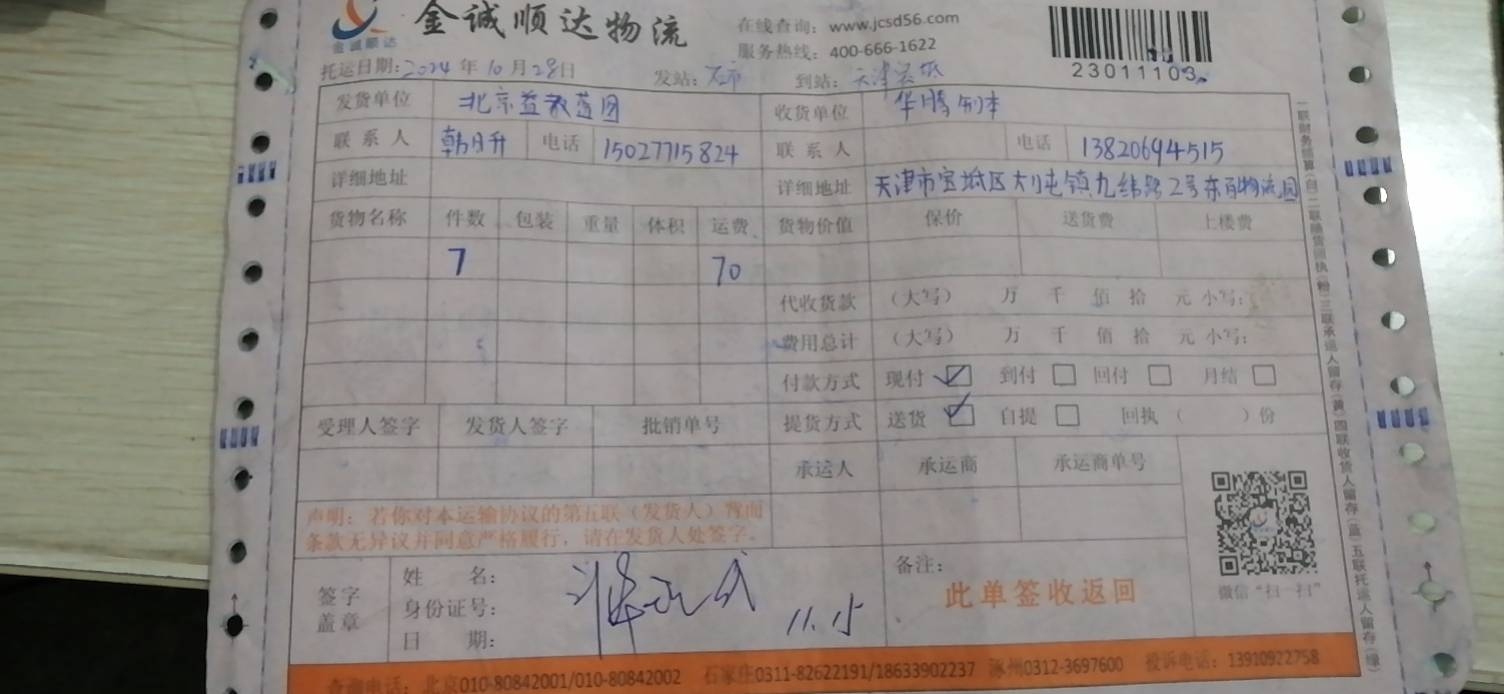 金诚顺达
金诚顺达物流
在线查询：www.jcsd56.com
服务热线：400-666-1622
23011103
托运日期：2024年10月28日 发站： 到站：天津
发货单位 北京益教蓝图 收货单位 华腾制本
联系人 韩月升 电话 15027715824 联系人 电话 13820694515
详细地址 详细地址 天津市宝坻区大口屯镇九纬路2号东百物流园
货物名称 件数 包装 重量 体积 运费 货物价值 保价 送货费 上楼费
7 70
代收货款 （大写） 万 千 佰 拾 元 小写：
费用总计 （大写） 万 千 佰 拾 元 小写：
付款方式 现付 到付 回付 月结
提货方式 送货 自提 回执（ ）份
受理人签字 发货人签字 批销单号
承运人 承运商 承运商单号
声明：若你对本运输协议的第五联（发货人）背面
条款无异议并同意严格履行，请在发货人处签字。
签字
盖章
姓 名：
身份证号：
日 期：
11.15
备注：
此单签收返回
微信“扫一扫”
查询电话：北京010-80842001/010-80842002 石家庄0311-82622191/18633902237 涿州0312-3697600 投诉电话：13910922758
一联财务结算（白）二联随货回执（粉）三联承运人留存（黄）四联收货人留存（蓝）五联托运人留存（绿）